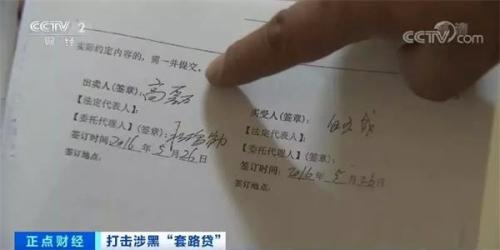 CCTV 2
财经
CCTV.com
实际约定内容的,需一并提交。
出卖人(签章):
【法定代表人】:
【委托代理人】(签章):
签订时间:2016年5月26日
签订地点:
买受人(签章):
【法定代表人】:
【委托代理人】(签章):
签订时间:2016年5月26日
签订地点:
正点财经
打击涉黑“套路贷”